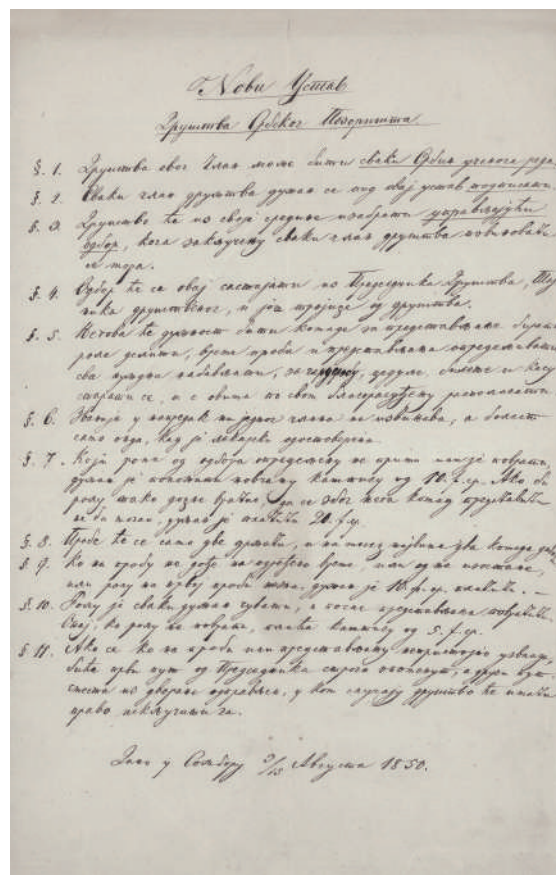 Нови Устав
Друштва Србског Позоришта
§. 1. Друштва овог член може бити сваки Србин ученога реда
§. 2. Сваки член друштва дужан се под овај устав подписати
§. 3. Друштво ће из своје средине изабрати управляјући
одбор, кога закључену сваки член друштва
се мора.
§. 4. Одбор ће се овај састојати из Председника Друштва,
друштвеног, и још тројице од друштва.
§. 5. Његова ће дужност бити комаде за представљање бирати
роле делити, време проба и представљања определявати
сва нуждна набављати, за цедуље, билете и касу
старати се, и с овима по свом располагати
§. 6. у напредак ни једног члена не извинява, а болест
само онда, кад је лекарски
§. 7. Који ролу од одбора определену не прими или је поврати,
дужан је новчану од 10. f. ср. Ако би
ролу тако доцне вратио, да се због тога комад представити
не би могао, дужан је платити 20. f. ср.
§. 8. Пробе ће се само две држати, и на месец највише два комада
§. 9. Ко на пробу не дође на одређено време, или од ње изостане,
или ролу на првој проби дужан је 10. f. ср. платити. –
§. 10. Ролу је сваки дужан чувати, а после представљања повратити.
Онај, ко ролу не поврати, плаћа од 5. f. ср.
§ 11. Ако се ко на проби или представљању непристојно
биће први пут од Председника строго опоменут, а други пут
из дворане одправљен, у ком случају друштво ће имати
право искључити га.
Дано у Сомбору 3/15 Августа 1850.